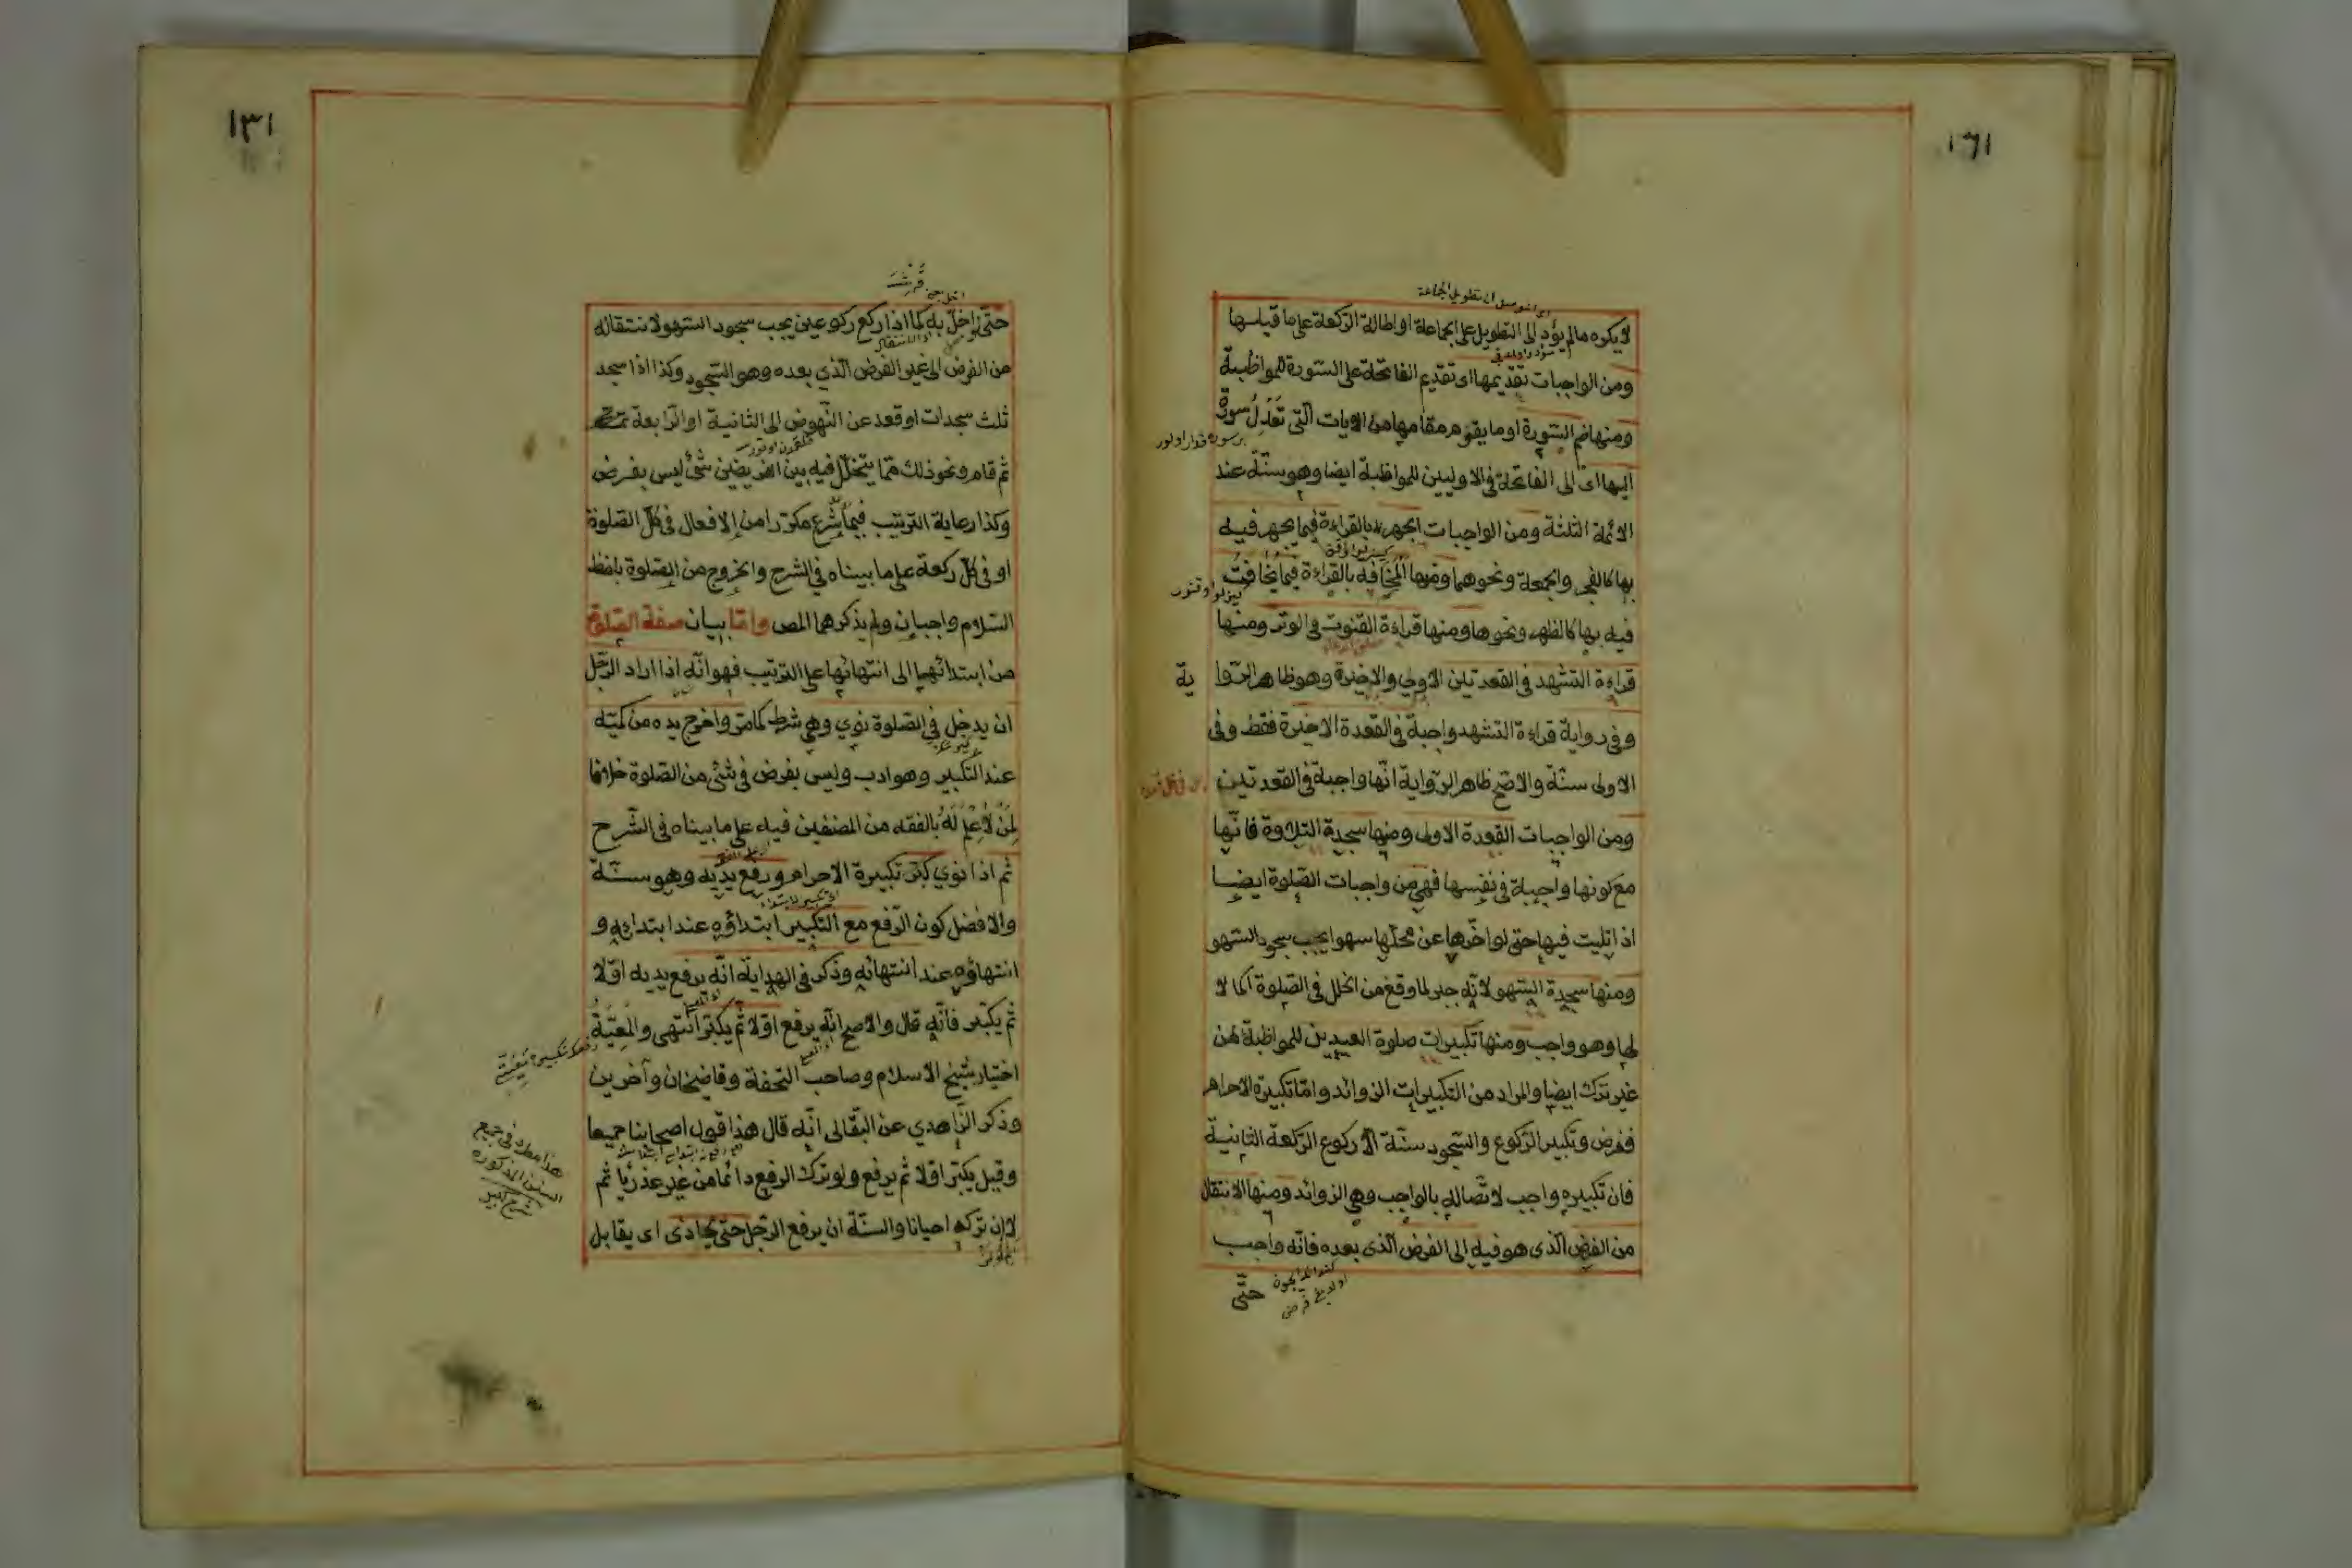 لا يكره ما لم يؤد الى التطويل على الجماعة او اطالة الركعة على ما قبلها
ومن الواجبات تقديمها اى تقديم الفاتحة على السورة للمواظبة
ومنها ضم السورة او ما يقوم مقامها من الايات التى تَعْدِلُ سورة
اليها اى الى الفاتحة فى الاوليين للمواظبة ايضا وهو سنّة عند
الائمة الثلثة ومن الواجبات الجهر بالقراءة فيما يجهر فيه
بها كالفجر والجمعة ونحوهما ومنها المخافة بالقراءة فيما يخافت
فيه بها كالظهر ونحوها ومنها قراءة القنوت فى الوتر ومنها
قراءة التشهد فى القعدتين الاولى والاخيرة وهو ظاهر الرّوا ية
وفى رواية قراءة التشهد واجبة فى القعدة الاخيرة فقط وفى
الاولى سنّة والاصّح ظاهر الرّواية انّها واجبة فى القعدتين
ومن الواجبات القعدة الاولى ومنها سجدة التلاوة فانّها
مع كونها واجبة فى نفسها فهى من واجبات الصّلوة ايضا
اذا تليت فيها حتى لو اخّرها عن محلّها سهوا يجب سجود السّهو
ومنها سجدة السّهو لانّه جبر لما وقع من الخلل فى الصّلوة اكمالا
لها وهو واجب ومنها تكبيرات صلوة العيدين للمواظبة لهن
غير ترك ايضا والمراد من التكبيرات الزوائد وامّا تكبيرة الاحرام
ففرض وتكبير الرّكوع والسّجود سنّة الا ركوع الرّكعة الثانية
فان تكبيره واجب لاتّصاله بالواجب وهى الزوائد ومنها الانتقال
من الفرض الّذى هو فيه الى الفرض الّذى بعده فانّه واجب
حتّى
١٣١
حتّى لو اخلّ به كما اذا ركع ركوعين يجب سجود السّهو لانتقاله
من الفرض الى غير الفرض الّذي بعده وهو السّجود وكذا اذا سجد
ثلث سجدات او قعد عن النّهوض الى الثانية او الرّابعة
ثم قام ونحو ذلك ممّا يتخلّل فيه بين الفريضين شئ ليس بفرض
وكذا رعاية الترتيب فيما شرع مكرّرا من الافعال فى كلّ الصّلوة
او فى كلّ ركعة على ما بيناه فى الشرح والخروج من الصّلوة بلفظ
السّلام واجبان ولم يذكرهما المص وامّا بيان صفة الصّلوة
من ابتدائها الى انتهائها على الترتيب فهو انّه اذا اراد الرّجل
ان يدخل فى الصّلوة نوي وهى شرط كما مرّ واخرج يده من كمّيه
عند التكبير وهو ادب وليس بفرض فى شئ من الصّلوة خلافا
لِمَنْ لا عِلْمَ لَهُ بالفقه من المصنفين فيه على ما بيناه فى الشرح
ثم اذا نوي كبّر تكبيرة الاحرام ورفع يديه وهو سنّة
والافضل كون الرّفع مع التكبير ابتداؤه عند ابتدائه و
انتهاؤه عند انتهائه وذكر فى الهداية انّه يرفع يديه اوّلا
ثم يكبّر فانّه قال والاصح انّه يرفع اوّلا ثم يكبّر انتهى والمعيّة
اختيار شيخ الاسلام وصاحب التحفة وقاضيخان وآخرين
وذكر الزّاهدي عن البقّالى انّه قال هذا قول اصحابنا جميعا
وقيل يكبّر اوّلا ثم يرفع ولو ترك الرفع دائما من غير عذر يأثم
لا ان تركه احيانا والسنّة ان يرفع الرّجل حتى يحاذى اى يقابل
هذا مطرد فى جميع
السنن المذكورة